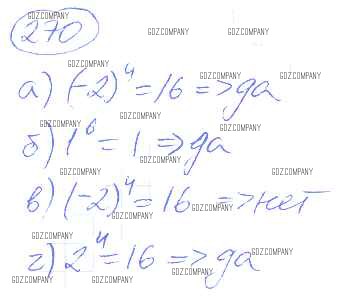 270
а) (-2)^4 = 16 => да
б) 1^6 = 1 => да
в) (-2)^4 = 16 => нет
г) 2^4 = 16 => да
GDZ.COMPANY